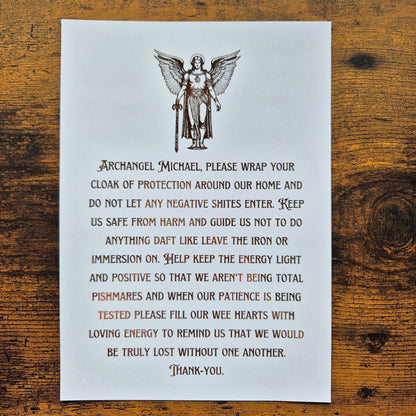 Archangel Michael, please wrap your
cloak of protection around our home and
do not let any negative shites enter. Keep
us safe from harm and guide us not to do
anything daft like leave the iron or
immersion on. Help keep the energy light
and positive so that we aren't being total
pishmares and when our patience is being
tested please fill our wee hearts with
loving energy to remind us that we would
be truly lost without one another.
Thank-you.